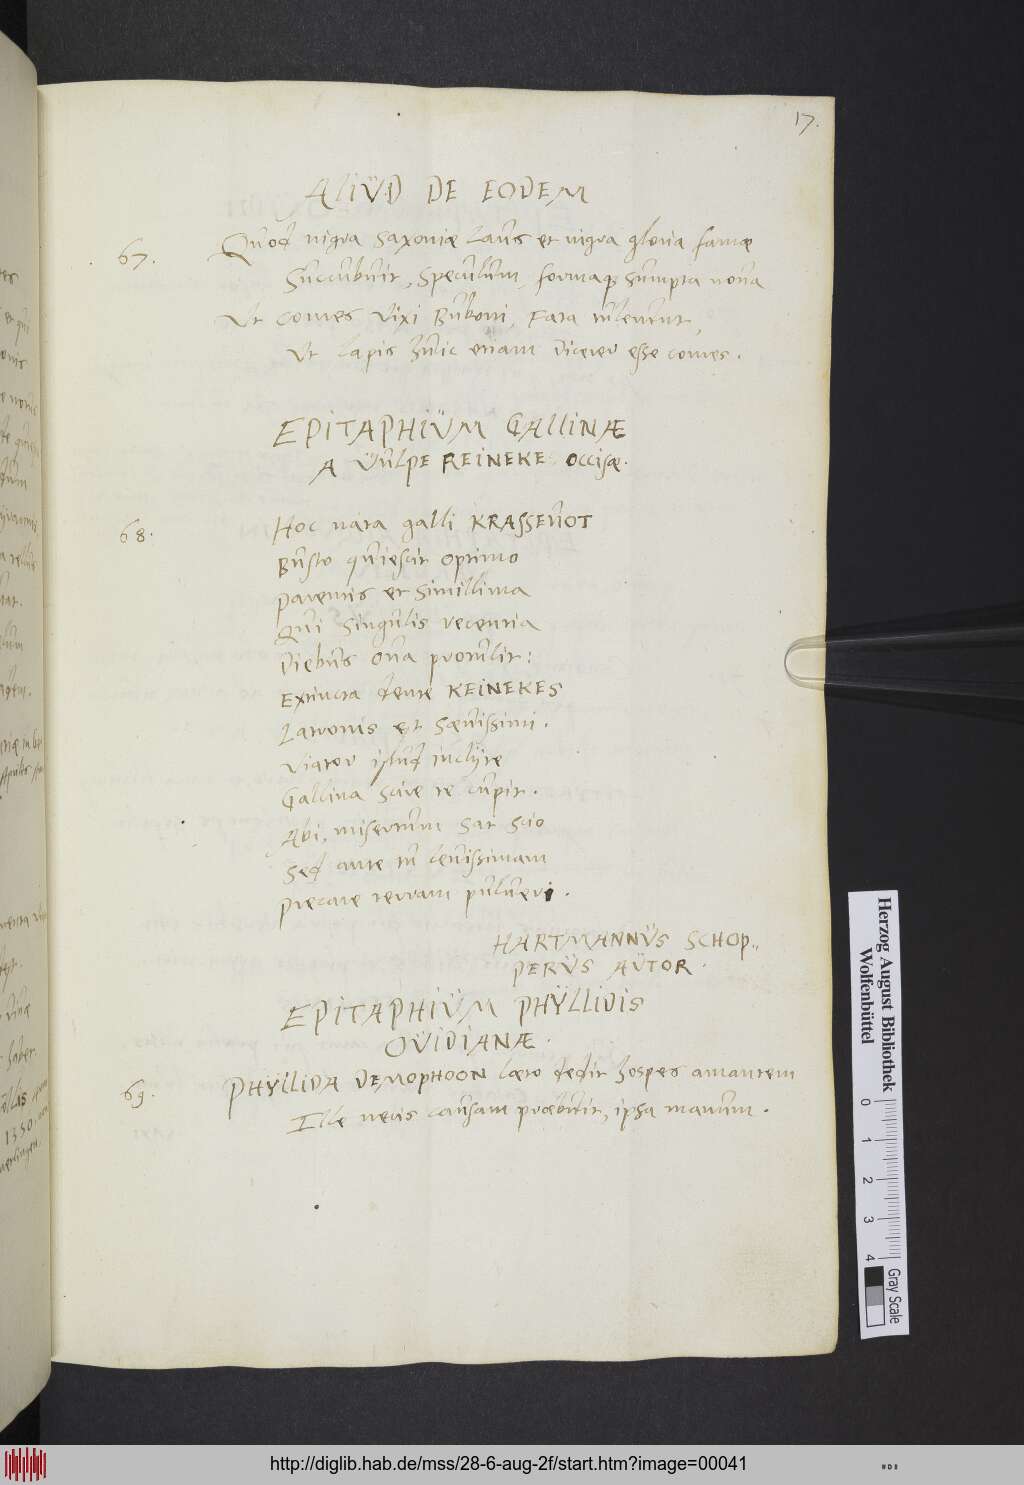 17.
ALIUD DE EODEM
67. Quod nigra Saxoniæ Laus et nigra gloria famæ
Succubuit, Speculum, formaq; Sumpta noua
Ut comes vixi Buboni, Fata tulerunt,
Ut lapis huic etiam dicerer esse comes.
EPITAPHIÜM GALLINÆ
A VULPE REINEKE Occisæ.
68. Hoc nata galli KRASSEUOT
Busto quiescit optimo
Parentis et simillima
Qui Singulis recentia
Diebus Oua protulit:
Extincta dente REINEKES
Latronis et sæuissimi.
Viator istud inclyte
Gallina scire te cupit.
Abi, misertum sat scio
Sed ante tu leuissimam
Precare terram pulueri.
HARTMANNÜS SCHOP„
PERÜS AÜTOR.
EPITAPHIÜM PHŸLLIDIS
OÜIDIANÆ.
69. PHYLLIDA DEMOPHOON læto dedit hospes amantem
Ille necis causam præbuit, ipsa manum.
Herzog August Bibliothek
Wolfenbüttel
0 1 2 3 4
Gray Scale
http://diglib.hab.de/mss/28-6-aug-2f/start.htm?image=00041